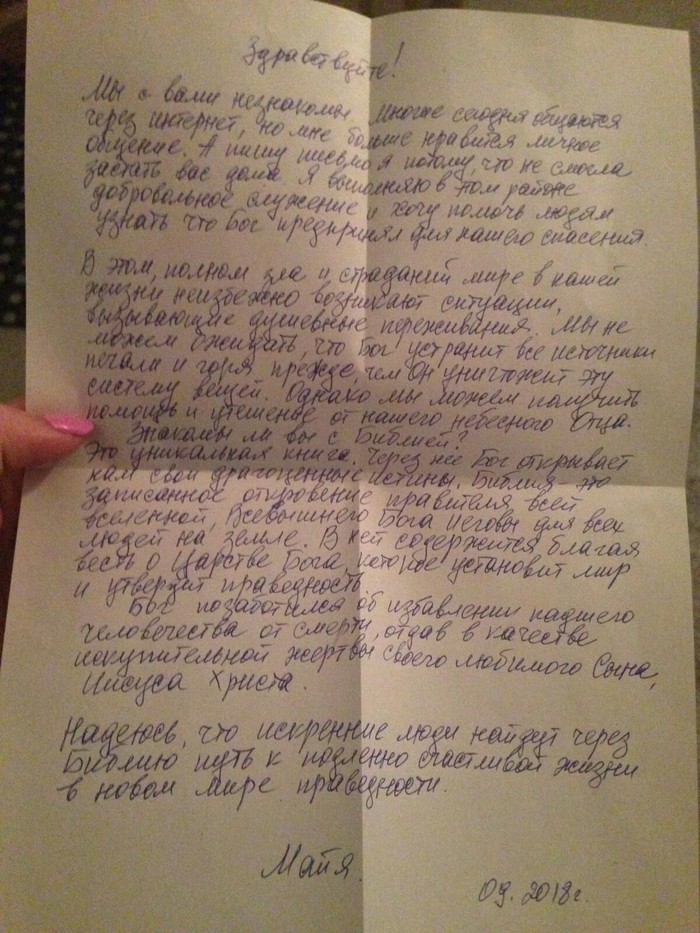 Здравствуйте!
Мы с вами незнакомы. Многие сегодня общаются
через интернет, но мне больше нравится личное
общение. А пишу письмо я потому, что не смогла
застать вас дома. Я выполняю в этом районе
добровольное служение и хочу помочь людям
узнать что Бог предпринял для нашего спасения.
В этом, полном зла и страданий мире в нашей
жизни неизбежно возникают ситуации,
вызывающие душевные переживания. Мы не
можем ожидать, что Бог устранит все источники
печали и горя, прежде, чем Он уничтожит эту
систему вещей. Однако мы можем получить
помощь и утешенье от нашего небесного Отца.
Знакомы ли вы с Библией?
Это уникальная книга. Через неё Бог открывает
нам свои драгоценные истины. Библия - это
записанное откровение правителя всей
вселенной, Всевышнего Бога Иеговы для всех
людей на земле. В ней содержится благая
весть о Царстве Бога, которое установит мир
и утвердит праведность.
Бог позаботился об избавлении падшего
человечества от смерти, отдав в качестве
искупительной жертвы своего любимого Сына,
Иисуса Христа.
Надеюсь, что искренние люди найдут через
Библию путь к подленно счастливой жизни
в новом мире праведности.
Майя.
09. 2018г.